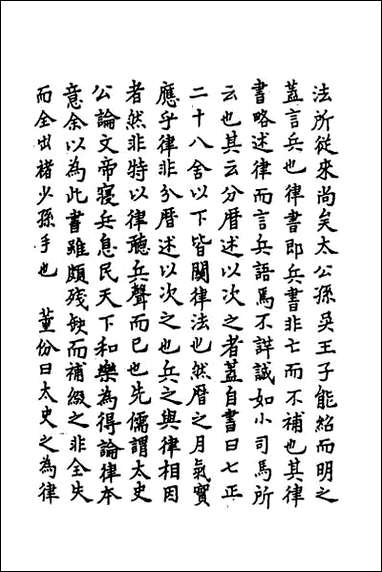 法所從來尚矣太公孫吳王子能紹而明之
蓋言兵也律書即兵書非亡而不補也其律
書略述律而言兵語焉不詳誠如小司馬所
云也其云分曆述以次之者蓋自書曰七正
二十八舍以下皆關律法也然曆之月氣實
應乎律非分曆述以次之也兵之與律相因
者然非特以律聽兵聲而已也先儒謂太史
公論文帝寢兵息民天下和樂為得論律本
意余以為此書雖頗殘缺而補綴之非全失
而全出褚少孫手也　董份曰太史之為律